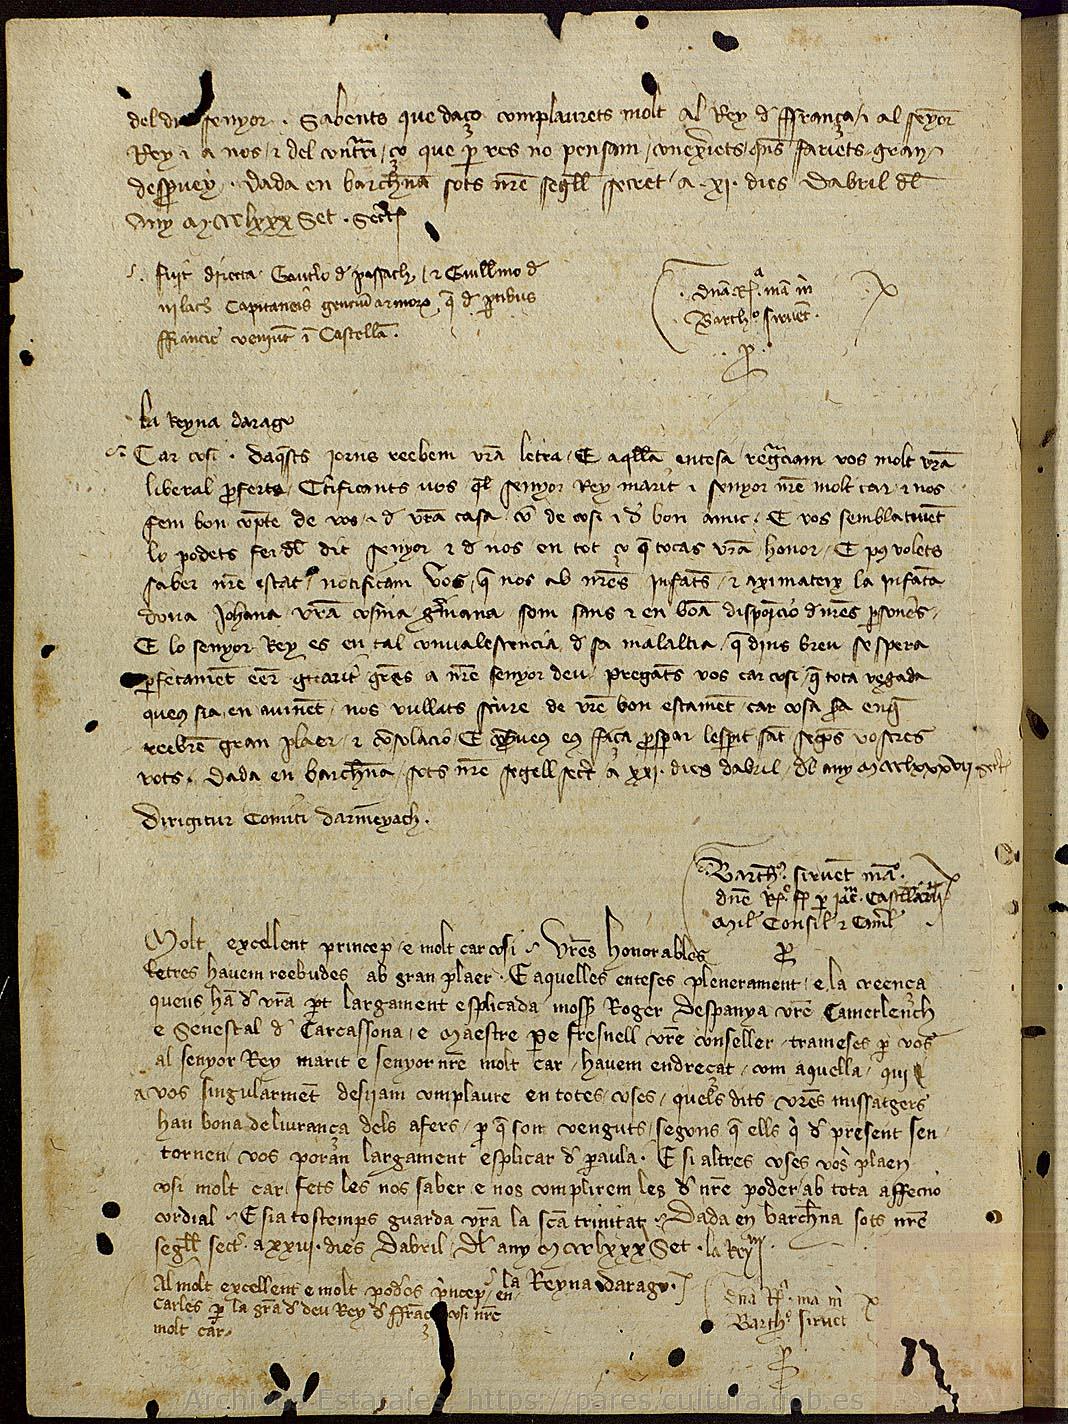 del dit senyor . Sabents que daço complaurets molt al Rey d ffrança / i al senyor
Rey i a nos / i del contrari / ço que per res no pensam / conexeriets quens fariets gran
desplaer . Dada en barchna sots nre segell secret a . xi . dies dabril del
any M CCC lxxx Set . Sect
fuit directa Gauto d passach / i Guillmo d
nilach Capitaneis gencium armorum q d ptibus
ffrancie veniut i Castella .
. dna Ra . ma m
Bartho siruet .
p
La Reyna darago
Car cosi . daqsts jorns reebem vra letra / E aqlla entesa / regraciam vos molt vra
liberal proferta / Ctificants vos ql senyor Rey marit i senyor nre molt car i nos
fem bon copte de vos / i d vra casa co de cosi i d bon amic . E vos semblatmet
lo podets fer dl dit senyor i d nos en tot ço q tocas vra honor / E pus volets
saber nre estat / notificam vos / q nos ab nres infats / i aximateix la infata
dona Johana vra cosina gmana som sans i en bona disposicio d nres psones .
E lo senyor Rey es en tal convalescencia d sa malaltia / q dins breu se spera
pfetamet eer guarit gres a nre senyor deu / pregats vos car cosi / q tota vegada
queus sia en avinet / nos vullats scriure de vre bon estamet / car cosa sera enq
reebre gran plaer / i cosolacio / E
vots . Dada en barchna sots nre segell sect a xxi . dies dabril / dl any M CCC lxxxvii Sect
Dirigitur Comiti darmeyach .
Bartho . siruet ma .
dne Ra . fp p Jac . Castellarii
Mil Consil i Caml
p
Molt excellent princep / e molt car cosi / Vres honorables
letres havem reebudes ab gran plaer . E aquelles enteses plenerament / e la creença
queus ha d vra pt largament esplicada moss Roger Despanya vre Camerlench
e Senescal d Carcassona / e Maestre Pe fresnell vre conseller / trameses p vos
al senyor Rey marit e senyor nre molt car / havem endreçat / com aquella / qui
a vos singularmet desijam complaure en totes coses / quels dits vres missatgers
han bona deliurança dels afers / p q son venguts / segons q ells q d present sen
tornen vos poran largament esplicar d paraula . E si altres coses vos plaen
cosi molt car / fets les nos saber e nos complirem les d nre poder ab tota affeccio
cordial / E sia tostemps guarda vra la sca trinitat / Dada en barchna sots nre
segell sect . a xxvi . dies Dabril / Dl any M CCC lxxx Set . la Reyna .
la Reyna darago .
Al molt excellent e molt poderos princep / en
Carles p la gra d deu Rey d ffrança cosi nre
molt car .
dna Ra . ma m
Bartho siruet
p
Archivos Estatales, https://pares.cultura.gob.es